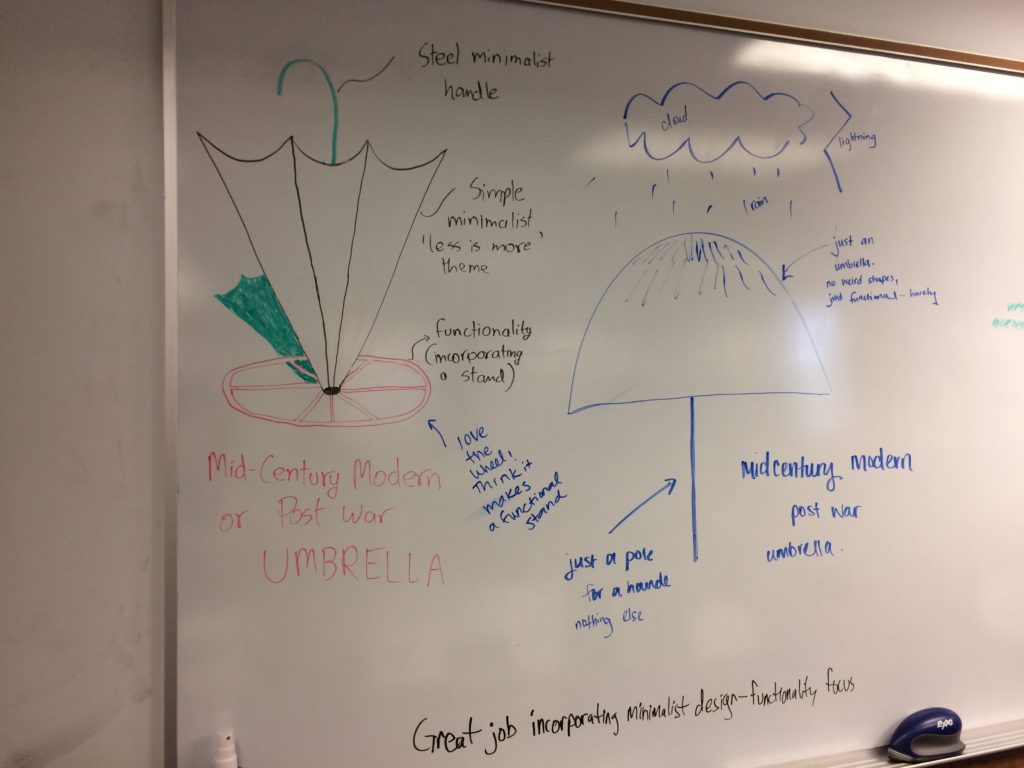 Steel minimalist
handle
Simple
minimalist
'less is more'
theme
functionality
(incorporating
a stand)
love
the
wheel,
Think it
makes
a functional
stand
Mid-Century Modern
or Post War
UMBRELLA
cloud
lightning
rain
just an
umbrella.
no weird shapes,
just functional - barely
just a pole
for a hande
nothing else
Midcentury Modern
post war
umbrella.
Great job incorporating minimalist design-functionality focus
EXPO